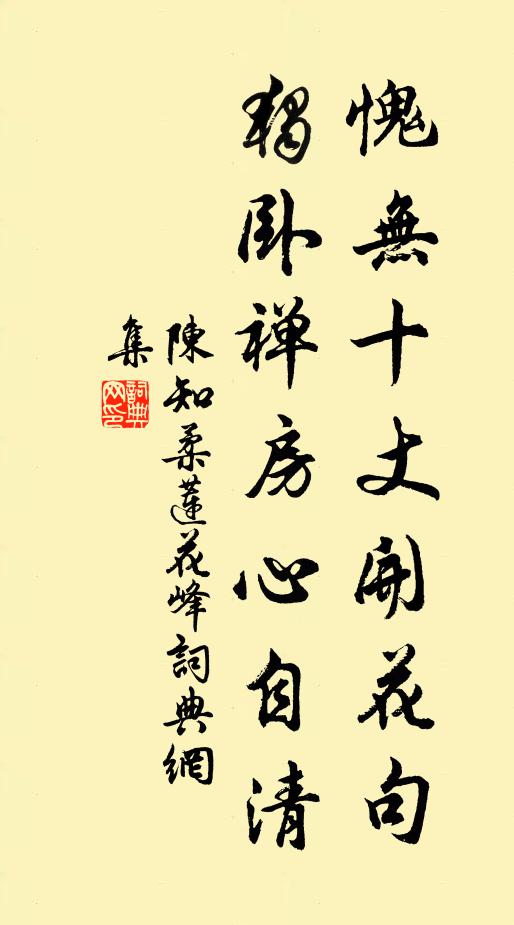 愧無十丈開花句
獨卧禅房心自清
陳知柔蓮花峰詞典網
集
詞典網印